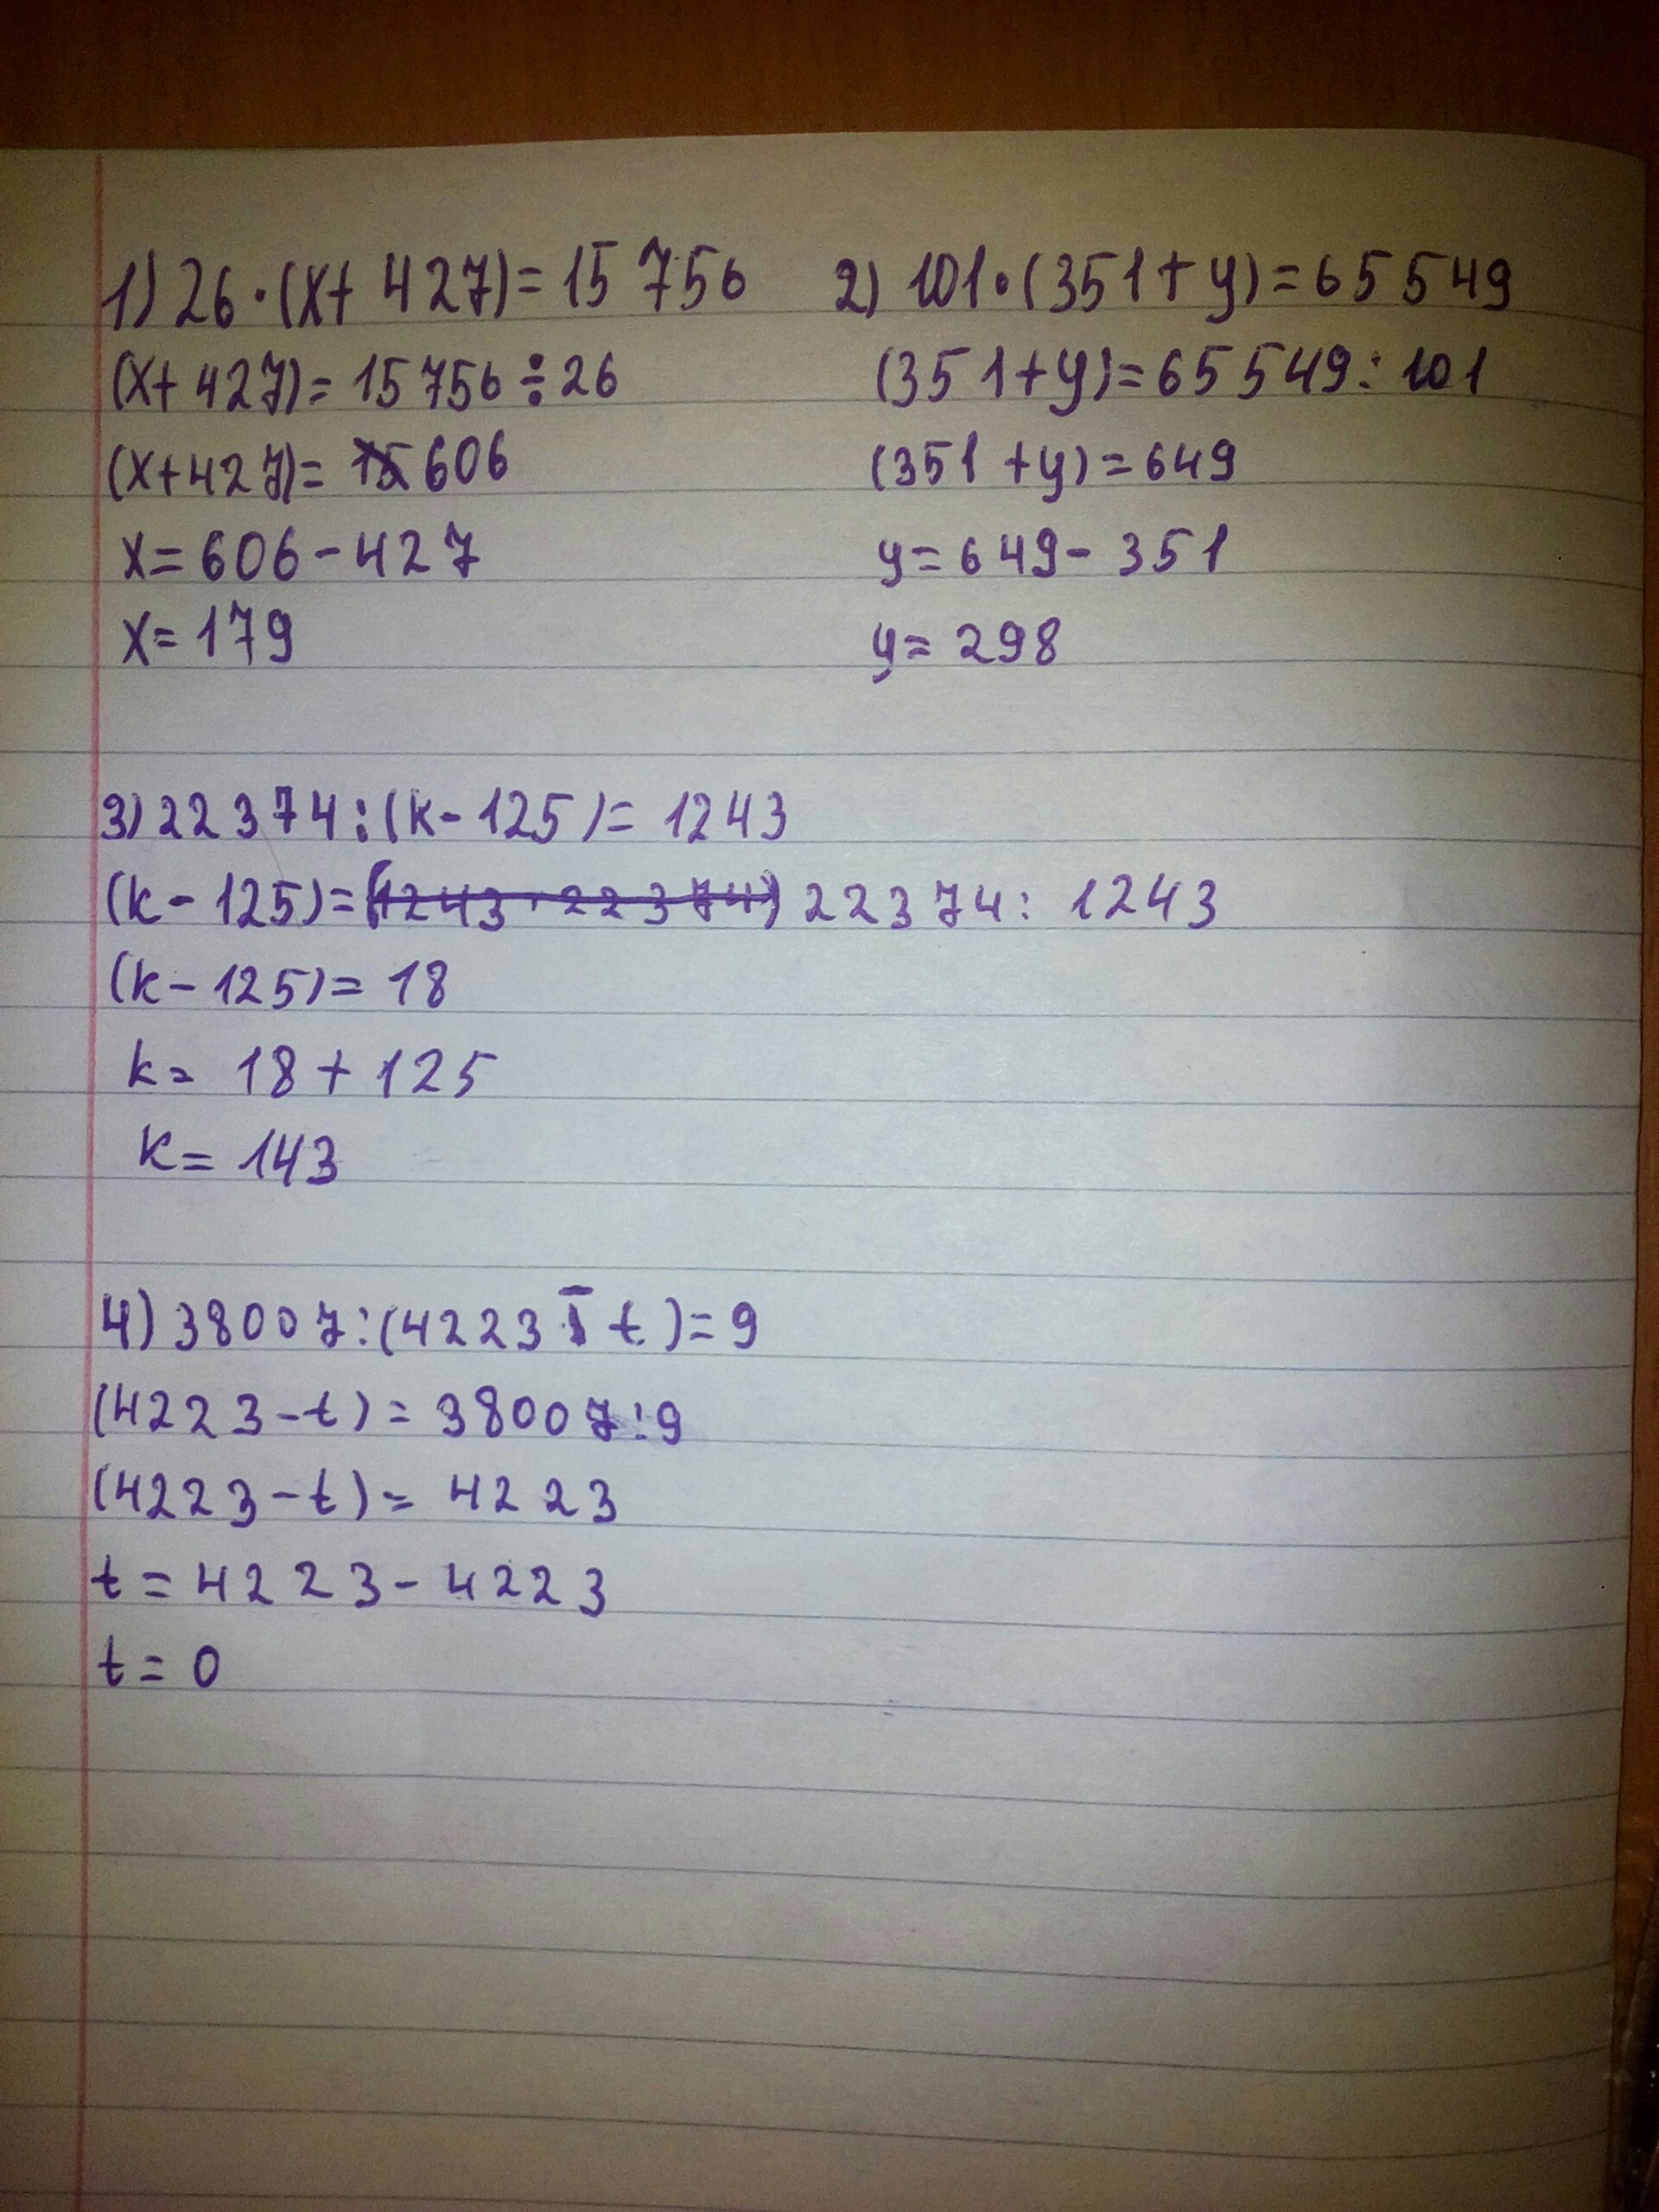 1) 26·(x+427)=15756
(x+427)=15756÷26
(x+427)= 15 606
x=606-427
x=179
2) 101·(351+y)=65549
(351+y)=65549:101
(351+y)=649
y=649-351
y=298
3) 22374:(k-125)=1243
(k-125)=(1243·22374) 22374:1243
(k-125)=18
k=18+125
k=143
4) 38007:(4223-t)=9
(4223-t)=38007:9
(4223-t)=4223
t=4223-4223
t=0